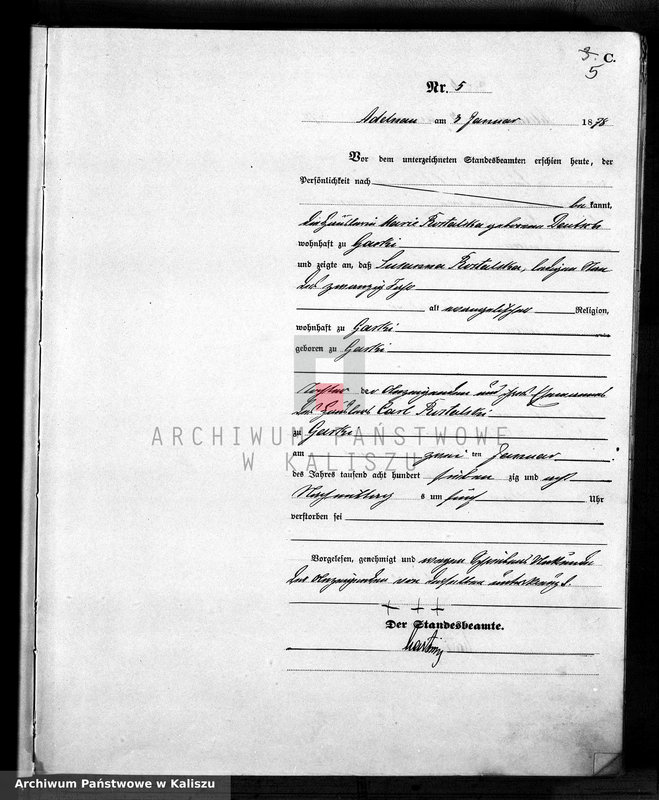 3. C.
5
Nr. 5
Adelnau am 3 Januar 1878
Vor dem unterzeichneten Standesbeamten erschien heute, der
Persönlichkeit nach
be kannt,
die Häuslerin Marie Kostalska geborene Deutsch
wohnhaft zu Garki
und zeigte an, daß Susanna Kostalska, ledigen Stan
des zwanzig Jahr
alt evangelischer Religion,
wohnhaft zu Garki
geboren zu Garki
Tochter der Anzeigenden und ihres Ehemannes
des Häuslers Carl Kostalski
zu Garki
ARCHIWUM PAŃSTWOWE
W KALISZU
am zwei ten Januar
des Jahres tausend acht hundert sieben zig und acht
Nachmittag s um fünf Uhr
verstorben sei
Vorgelesen, genehmigt und wegen Schreibens Unkunde
der Anzeigenden von derselben unterkreuzt.
+ + +
Der Standesbeamte.
Archiwum Państwowe w Kaliszu